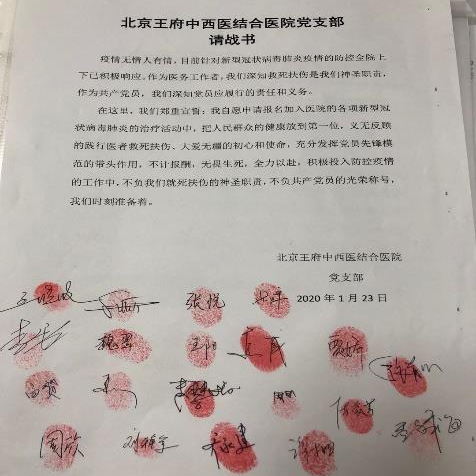 北京王府中西医结合医院党支部
请战书
疫情无情人有情，目前针对新型冠状病毒肺炎疫情的防控全院上
下已积极响应。作为医务工作者，我们深知救死扶伤是我们神圣职责，
作为共产党员，我们深知党员应履行的责任和义务。
在这里，我们郑重宣誓：我自愿申请报名加入医院的各项新型冠
状病毒肺炎的治疗活动中，把人民群众的健康放到第一位，义无反顾
的践行医者救死扶伤、大爱无疆的初心和使命，充分发挥党员先锋模
范的带头作用，不计报酬，无畏生死，全力以赴，积极投入防控疫情
的工作中，不负我们就死扶伤的神圣职责，不负共产党员的光荣称号，
我们时刻准备着。
北京王府中西医结合医院
党支部
2020 年 1 月 23 日
张悦